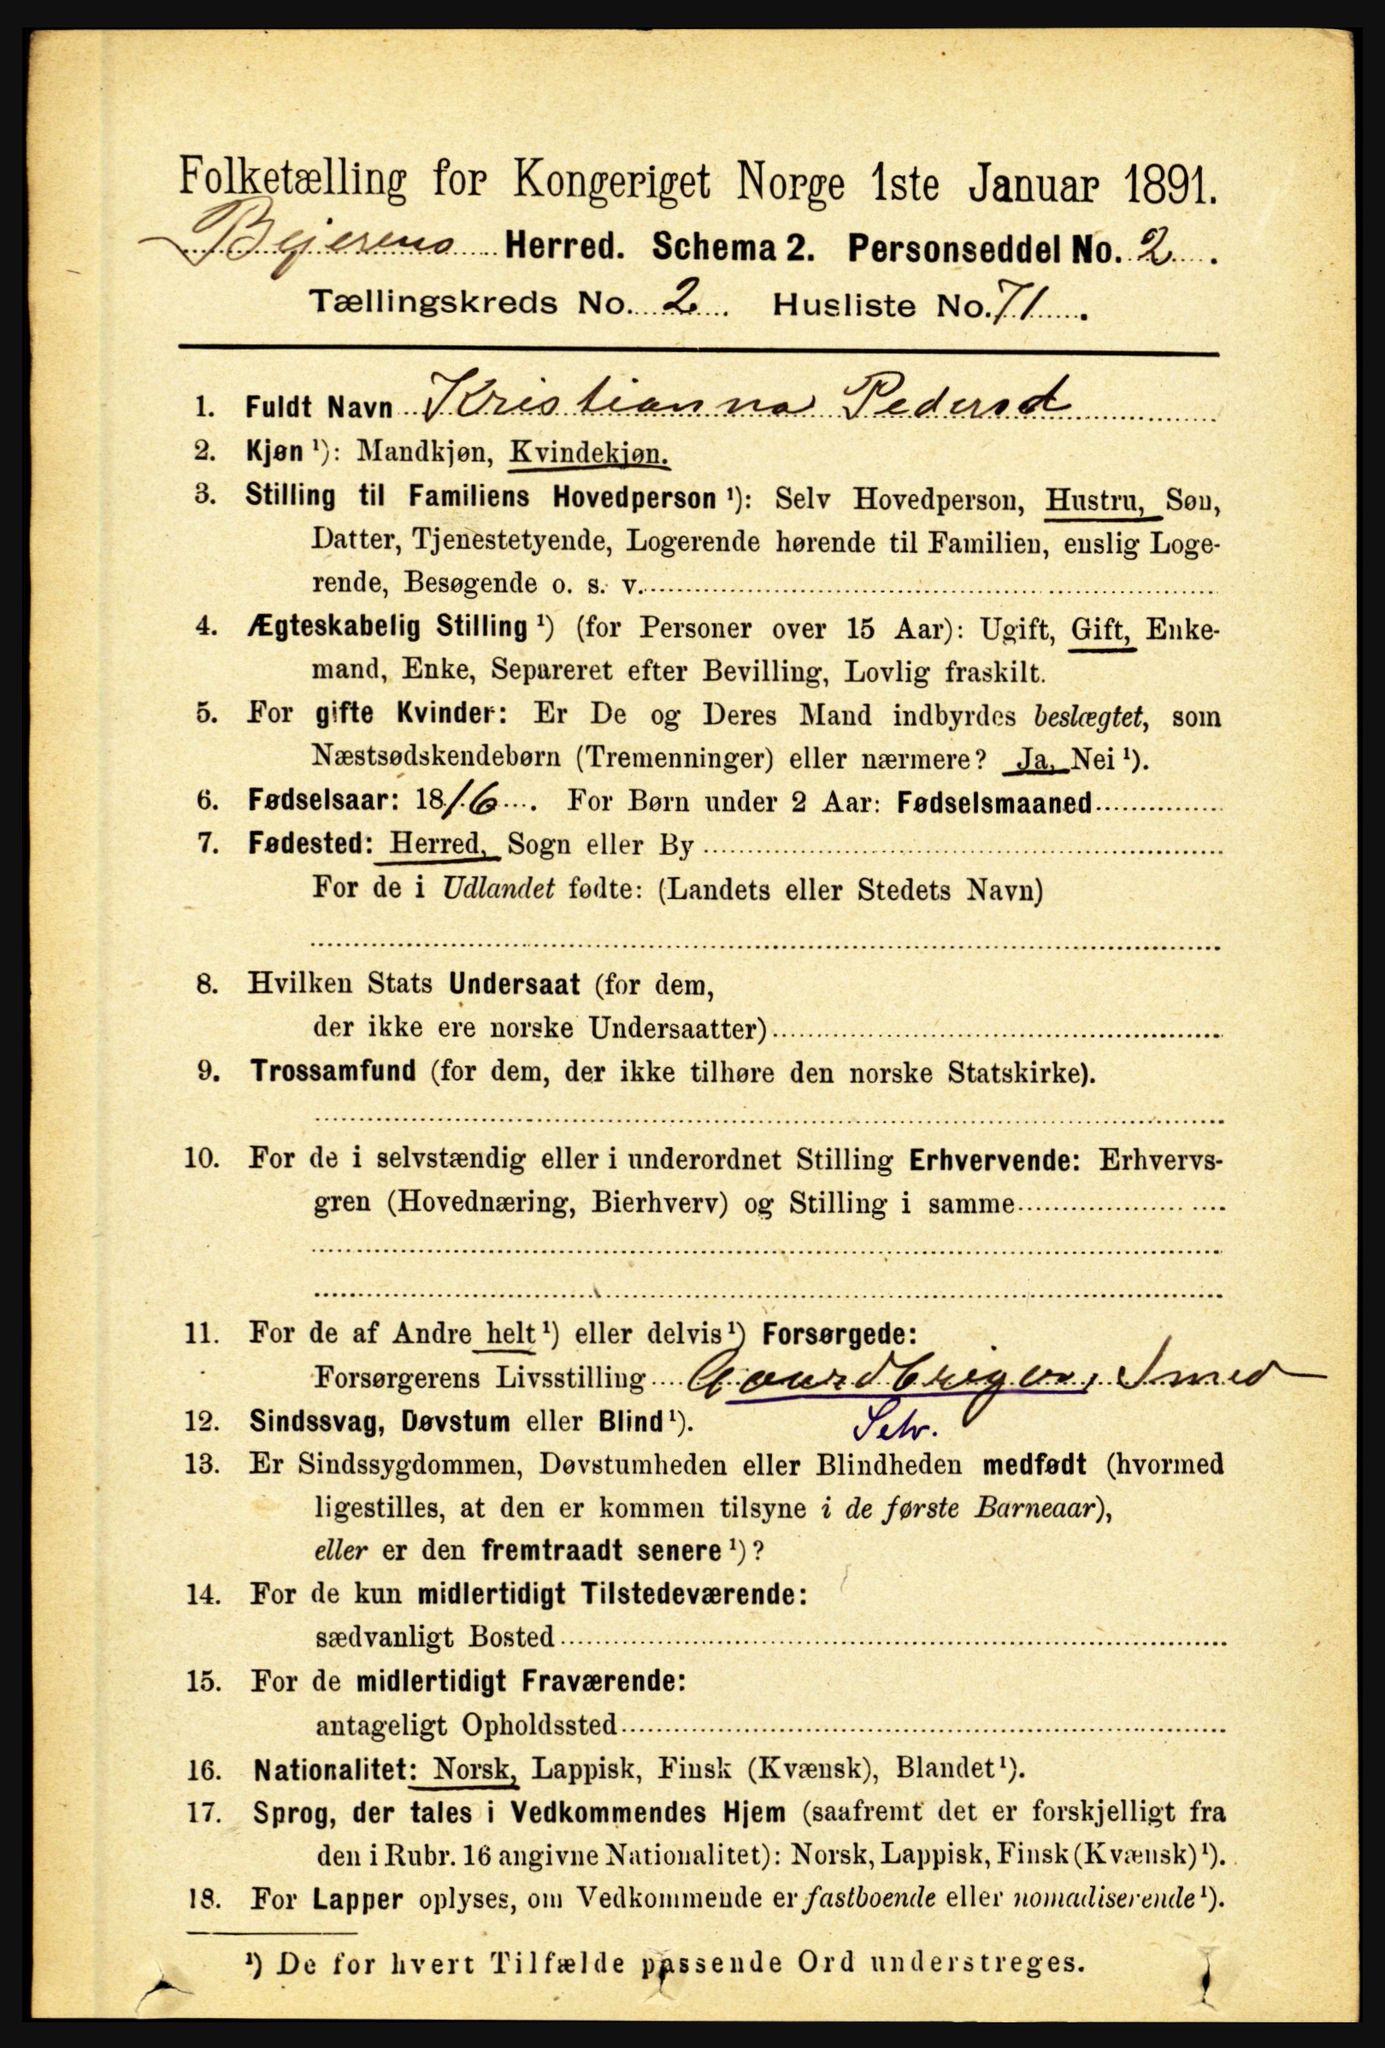 Folketælling for Kongeriget Norge 1ste Januar 1891.
Bejerens Herred. Schema 2. Personseddel No. 2.
Tællingskreds No. 2. Husliste No. 71.
1. Fuldt Navn Kristianna Pedersd
2. Kjøn ¹): Mandkjøn, Kvindekjøn.
3. Stilling til Familiens Hovedperson ¹): Selv Hovedperson, Hustru, Søn,
Datter, Tjenestetyende, Logerende hørende til Familien, enslig Loge-
rende, Besøgende o. s. v.
4. Ægteskabelig Stilling ¹) (for Personer over 15 Aar): Ugift, Gift, Enke-
mand, Enke, Separeret efter Bevilling, Lovlig fraskilt.
5. For gifte Kvinder: Er De og Deres Mand indbyrdes beslægtet, som
Næstsødskendebørn (Tremenninger) eller nærmere? Ja, Nei ¹).
6. Fødselsaar: 1816. For Børn under 2 Aar: Fødselsmaaned
7. Fødested: Herred, Sogn eller By
For de i Udlandet fødte: (Landets eller Stedets Navn)
8. Hvilken Stats Undersaat (for dem,
der ikke ere norske Undersaatter)
9. Trossamfund (for dem, der ikke tilhøre den norske Statskirke).
10. For de i selvstændig eller i underordnet Stilling Erhvervende: Erhvervs-
gren (Hovednæring, Bierhverv) og Stilling i samme
11. For de af Andre helt ¹) eller delvis ¹) Forsørgede:
Forsørgerens Livsstilling Gaardbruger, Smed
12. Sindssvag, Døvstum eller Blind ¹). Selv.
13. Er Sindssygdommen, Døvstumheden eller Blindheden medfødt (hvormed
ligestilles, at den er kommen tilsyne i de første Barneaar),
eller er den fremtraadt senere ¹)?
14. For de kun midlertidigt Tilstedeværende:
sædvanligt Bosted
15. For de midlertidigt Fraværende:
antageligt Opholdssted
16. Nationalitet: Norsk, Lappisk, Finsk (Kvænsk), Blandet ¹).
17. Sprog, der tales i Vedkommendes Hjem (saafremt det er forskjelligt fra
den i Rubr. 16 angivne Nationalitet): Norsk, Lappisk, Finsk (Kvænsk) ¹).
18. For Lapper oplyses, om Vedkommende er fastboende eller nomadiserende ¹).
¹) De for hvert Tilfælde passende Ord understreges.